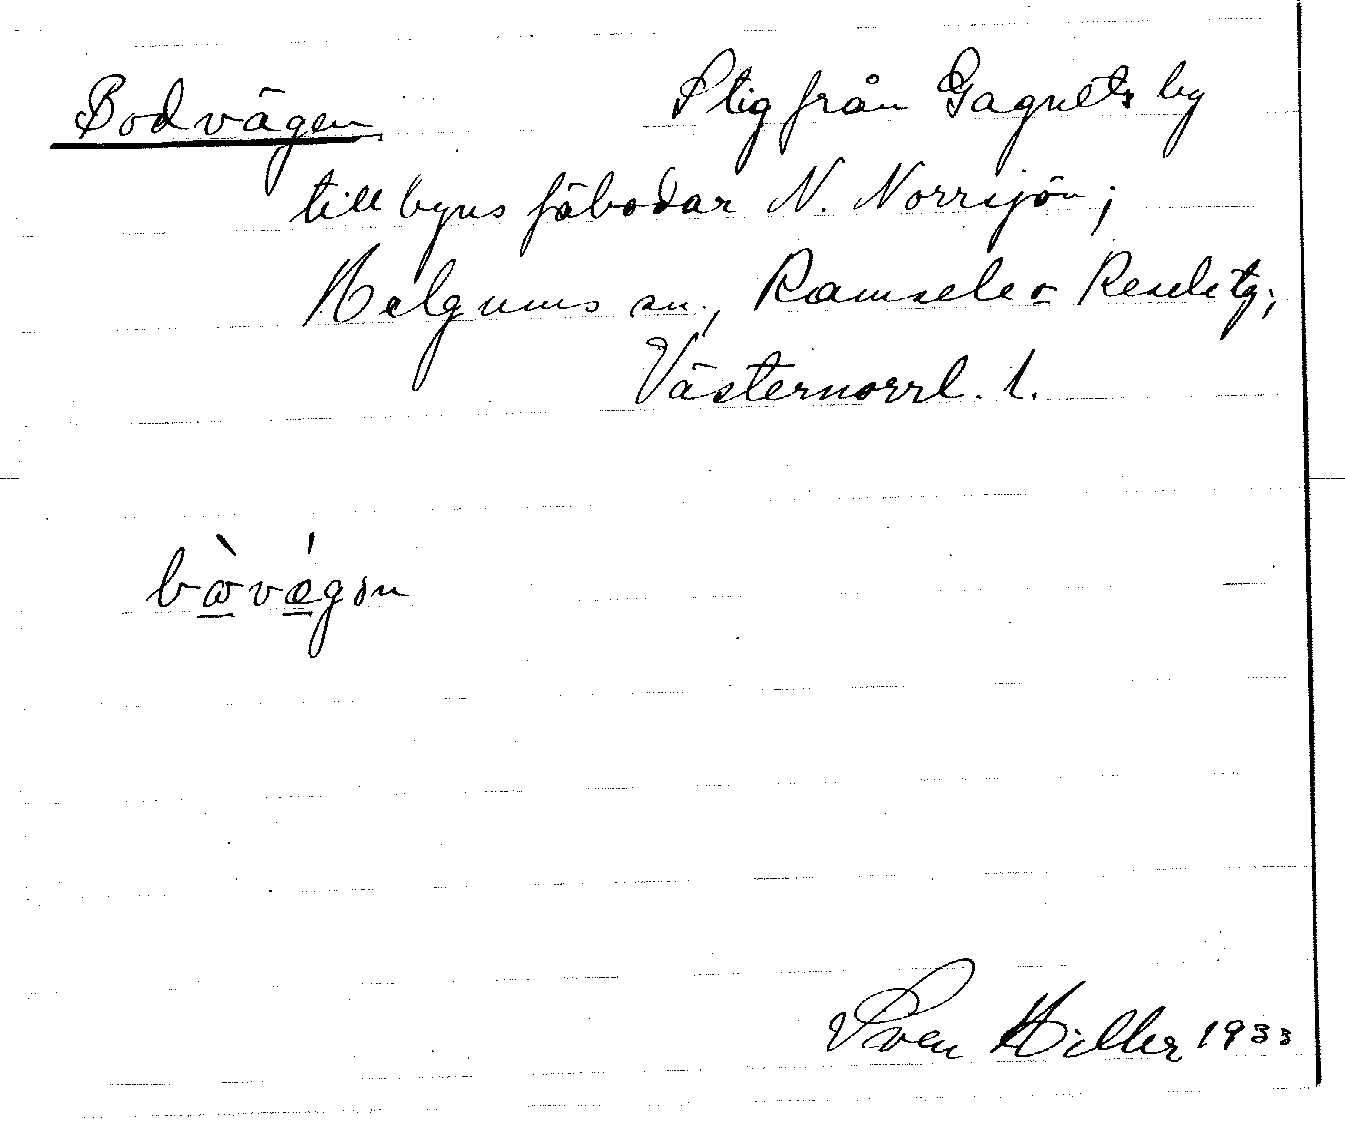 Bodvägen Stig från Gagnets by
till byns fäbodar N. Norrsjön;
Helgums sn., Ramsele o Resele tg;
Västernorrl. l.
Sven Hiller 1933